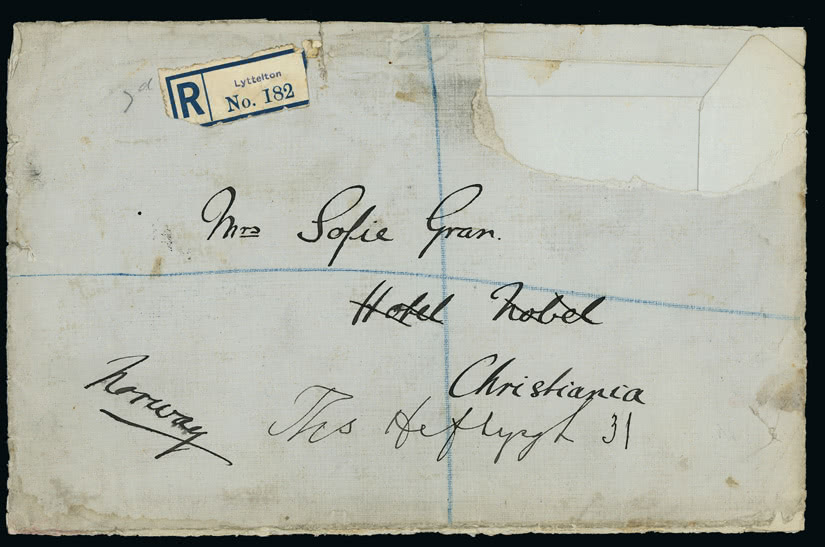 7d
R
Lyttelton
No. 182
Mrs Sofie Gran.
Hotel Nobel
Christiania
Norway
Ths Heftyesgt 31